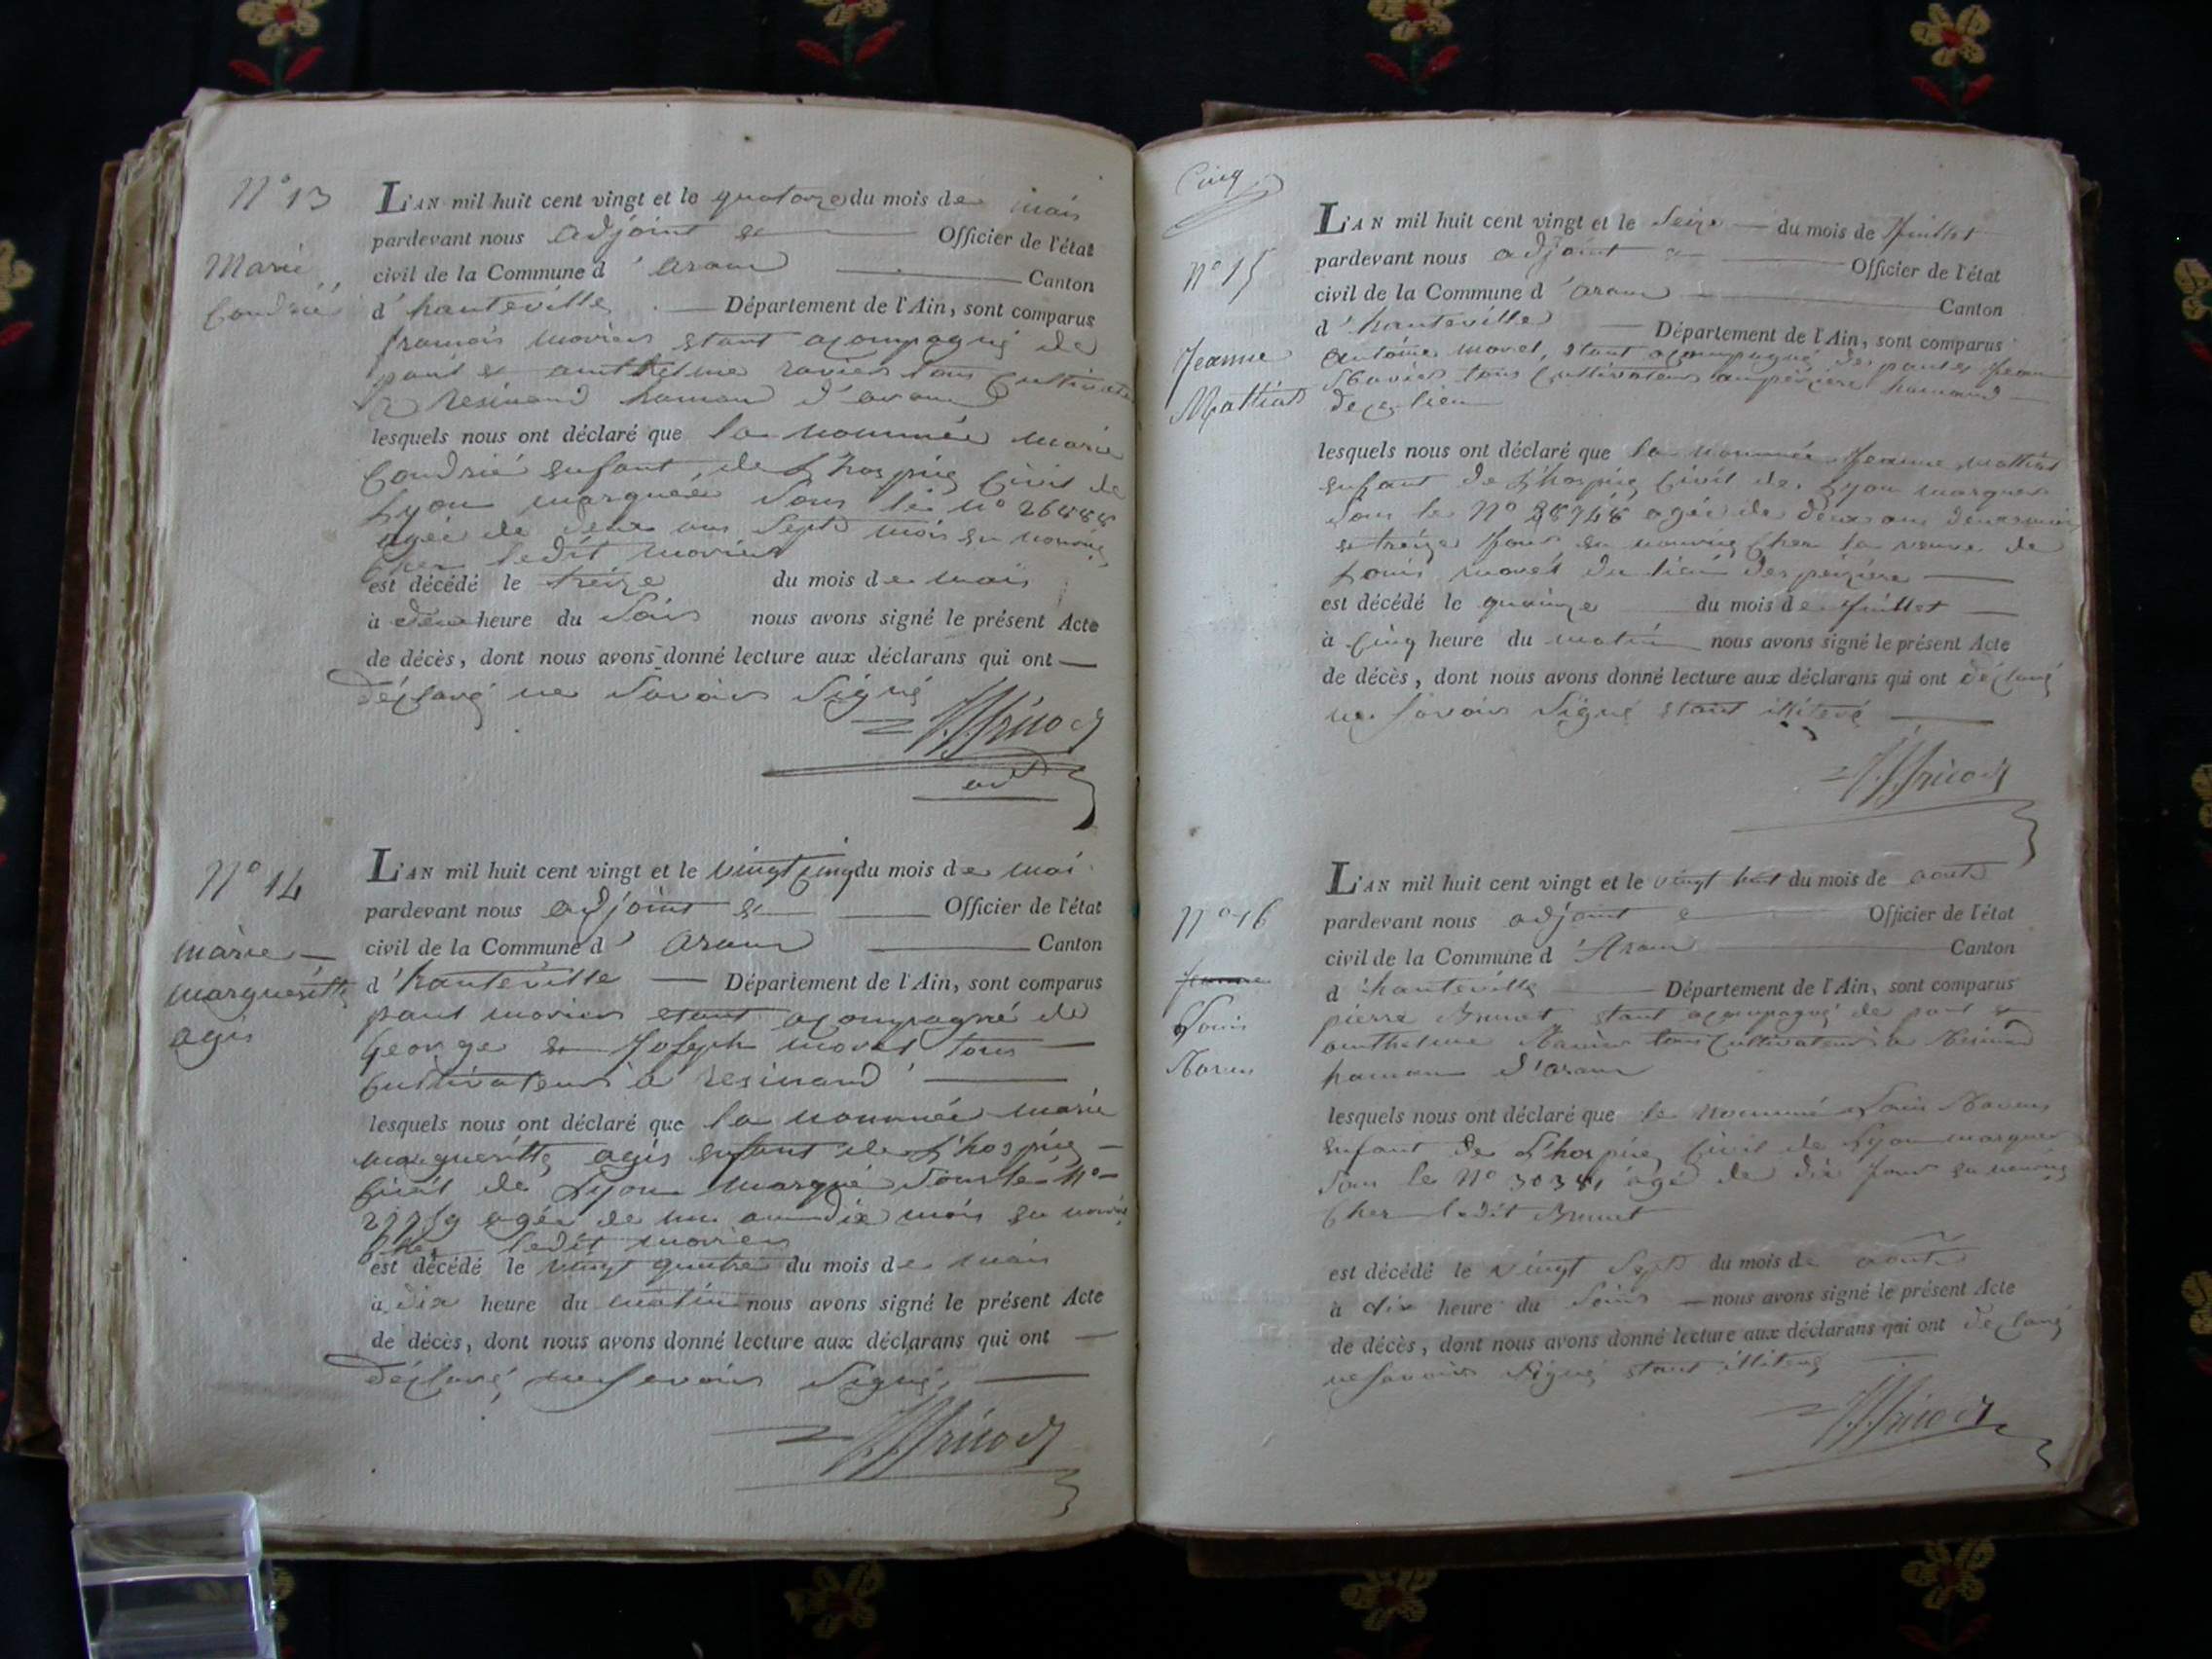 N° 13
Marie
Coudrié
L'AN mil huit cent vingt et le quatorze du mois de mais
pardevant nous adjoint Officier de l'état
civil de la Commune d' aranc Canton
d' hauteville Département de l'Ain, sont comparus
francois moriers etant acompagné de
paul et anthelme raviers tous Cultivateurs
a resinand hamau d'aranc
lesquels nous ont déclaré que la nommée marie
Coudrié enfant de L'hospice Civil de
Lyon marquée Sous le N°
agée de deux ans Sept mois en
Cher ledit moriers
est décédé le treize du mois de mais
à deux heure du Soir nous avons signé le présent Acte
de décès, dont nous avons donné lecture aux déclarans qui ont
déclaré ne Savoir Signé
N° 14
marie
margueritte
agis
L'AN mil huit cent vingt et le vingt cinq du mois de mai
pardevant nous adjoint Officier de l'état
civil de la Commune d' aranc Canton
d' hauteville Département de l'Ain, sont comparus
paul moriers etant acompagné de
George et Joseph moret tous
Cultivateurs a resinand
lesquels nous ont déclaré que la nommée marie
margueritte agis enfant de L'hospice
Civil de Lyon marqué Sous le N°
agée de un an dix mois en
Cher ledit moriers
est décédé le vingt quatre du mois de mais
à dix heure du matin nous avons signé le présent Acte
de décès, dont nous avons donné lecture aux déclarans qui ont
déclaré ne Savoir Signé
Cinq
N° 15
Jeanne
Mattiat
L'AN mil huit cent vingt et le Seize du mois de Juillet
pardevant nous adjoint Officier de l'état
civil de la Commune d' aranc Canton
d' hauteville Département de l'Ain, sont comparus
antoine moret, etant acompagné de paul et Jean
tous Cultivateurs hamau
de ce lieu
lesquels nous ont déclaré que la nommée Jeanne Mattiat
enfant de L'hospice Civil de Lyon marquée
Sous le N° 28748 agée de deux ans deux mois
et treize Jour en Cher la veuve de
Louis moret du lieu
est décédé le quinze du mois de Juillet
à Cinq heure du matin nous avons signé le présent Acte
de décès, dont nous avons donné lecture aux déclarans qui ont déclaré
ne Savoir Signé etant illiteré
N° 16
Jeanne
Louis
L'AN mil huit cent vingt et le vingt huit du mois de aout
pardevant nous adjoint Officier de l'état
civil de la Commune d' Aranc Canton
d' hauteville Département de l'Ain, sont comparus
pierre Brunet etant acompagné de paul et
anthelme Raviers tous Cultivateurs a Resinand
hamau d'aranc
lesquels nous ont déclaré que le Nommé Louis
enfant de L'hospice Civil de Lyon marquée
Sous le N° 30381 agé de dix Jour en
Cher ledit Brunet
est décédé le vingt Sept du mois de aout
à dix heure du Soir nous avons signé le présent Acte
de décès, dont nous avons donné lecture aux déclarans qui ont déclaré
ne Savoir Signé etant illiteré